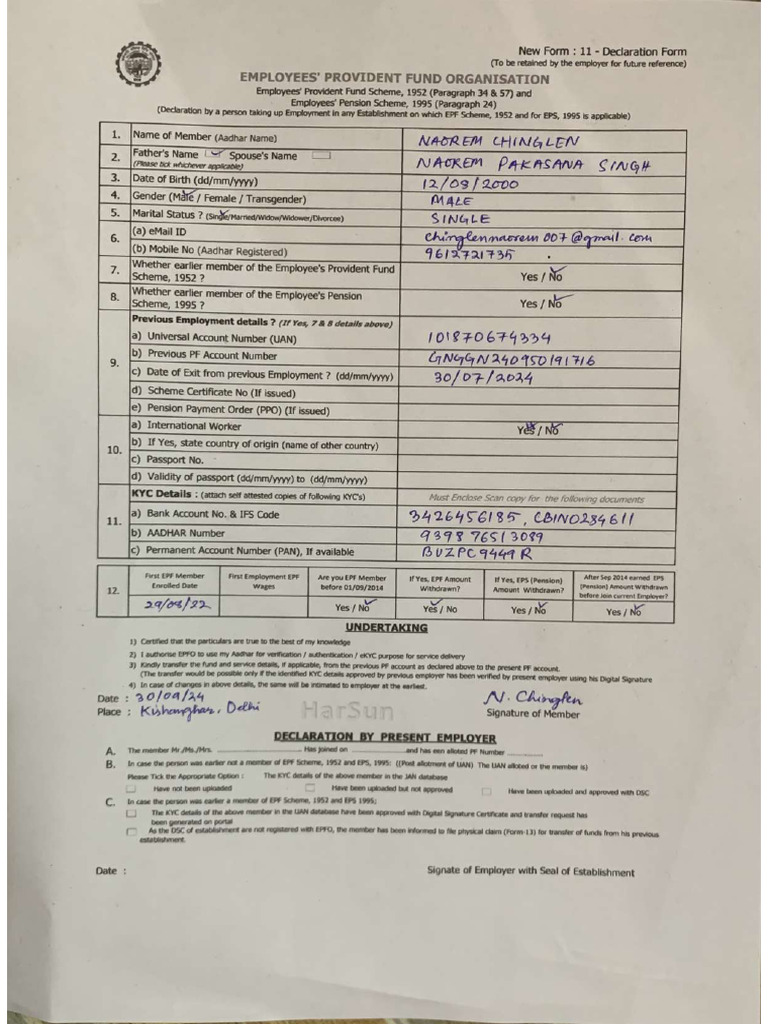 New Form : 11 - Declaration Form
(To be retained by the employer for future reference)
EMPLOYEES' PROVIDENT FUND ORGANISATION
Employees' Provident Fund Scheme, 1952 (Paragraph 34 & 57) and
Employees' Pension Scheme, 1995 (Paragraph 24)
(Declaration by a person taking up Employment in any Establishment on which EPF Scheme, 1952 and for EPS, 1995 is applicable)
1. Name of Member (Aadhar Name) NAOREM CHINGLEN
2. Father's Name Spouse's Name NAOREM PAKASANA SINGH
(Please tick whichever applicable)
3. Date of Birth (dd/mm/yyyy) 12/08/2000
4. Gender (Male / Female / Transgender) MALE
5. Marital Status ? (Single/Married/Widow/Widower/Divorcee) SINGLE
6. (a) eMail ID chinglennaorem007@gmail.com
(b) Mobile No (Aadhar Registered) 9612721735
7. Whether earlier member of the Employee's Provident Fund Scheme, 1952 ? Yes / No
8. Whether earlier member of the Employee's Pension Scheme, 1995 ? Yes / No
9. Previous Employment details ? (If Yes, 7 & 8 details above)
a) Universal Account Number (UAN) 101870674334
b) Previous PF Account Number GNGGN24095019 1716
c) Date of Exit from previous Employment ? (dd/mm/yyyy) 30/07/2024
d) Scheme Certificate No (If issued)
e) Pension Payment Order (PPO) (If issued)
10. a) International Worker Yes / No
b) If Yes, state country of origin (name of other country)
c) Passport No.
d) Validity of passport (dd/mm/yyyy) to (dd/mm/yyyy)
11. KYC Details : (attach self attested copies of following KYC's) Must Enclose Scan copy for the following documents
a) Bank Account No. & IFS Code 3426456185, CBIN0284611
b) AADHAR Number 9398 7651 3089
c) Permanent Account Number (PAN), If available BUZPC9449R
12. First EPF Member Enrolled Date First Employment EPF Wages Are you EPF Member before 01/09/2014 If Yes, EPF Amount Withdrawn? If Yes, EPS (Pension) Amount Withdrawn? After Sep 2014 earned EPS (Pension) Amount Withdrawn before Join current Employer?
29/08/22 Yes / No Yes / No Yes / No Yes / No
UNDERTAKING
1) Certified that the particulars are true to the best of my knowledge
2) I authorise EPFO to use my Aadhar for verification / authentication / eKYC purpose for service delivery
3) Kindly transfer the fund and service details, if applicable, from the previous PF account as declared above to the present PF account.
(The transfer would be possible only if the identified KYC details approved by previous employer has been verified by present employer using his Digital Signature
4) In case of changes in above details, the same will be intimated to employer at the earliest.
Date : 30/09/24 N. Chinglen
Place : Kishanghar, Delhi HarSun Signature of Member
DECLARATION BY PRESENT EMPLOYER
A. The member Mr./Ms./Mrs. Has joined on and has een alloted PF Number
B. In case the person was earlier not a member of EPF Scheme, 1952 and EPS, 1995: ((Post allotment of UAN) The UAN alloted or the member is)
Please Tick the Appropriate Option : The KYC details of the above member in the UAN database
Have not been uploaded Have been uploaded but not approved Have been uploaded and approved with DSC
C. In case the person was earlier a member of EPF Scheme, 1952 and EPS 1995;
The KYC details of the above member in the UAN database have been approved with Digital Signature Certificate and transfer request has
been generated on portal
As the DSC of establishment are not registered with EPFO, the member has been informed to file physical claim (Form-13) for transfer of funds from his previous
establishment.
Date : Signate of Employer with Seal of Establishment